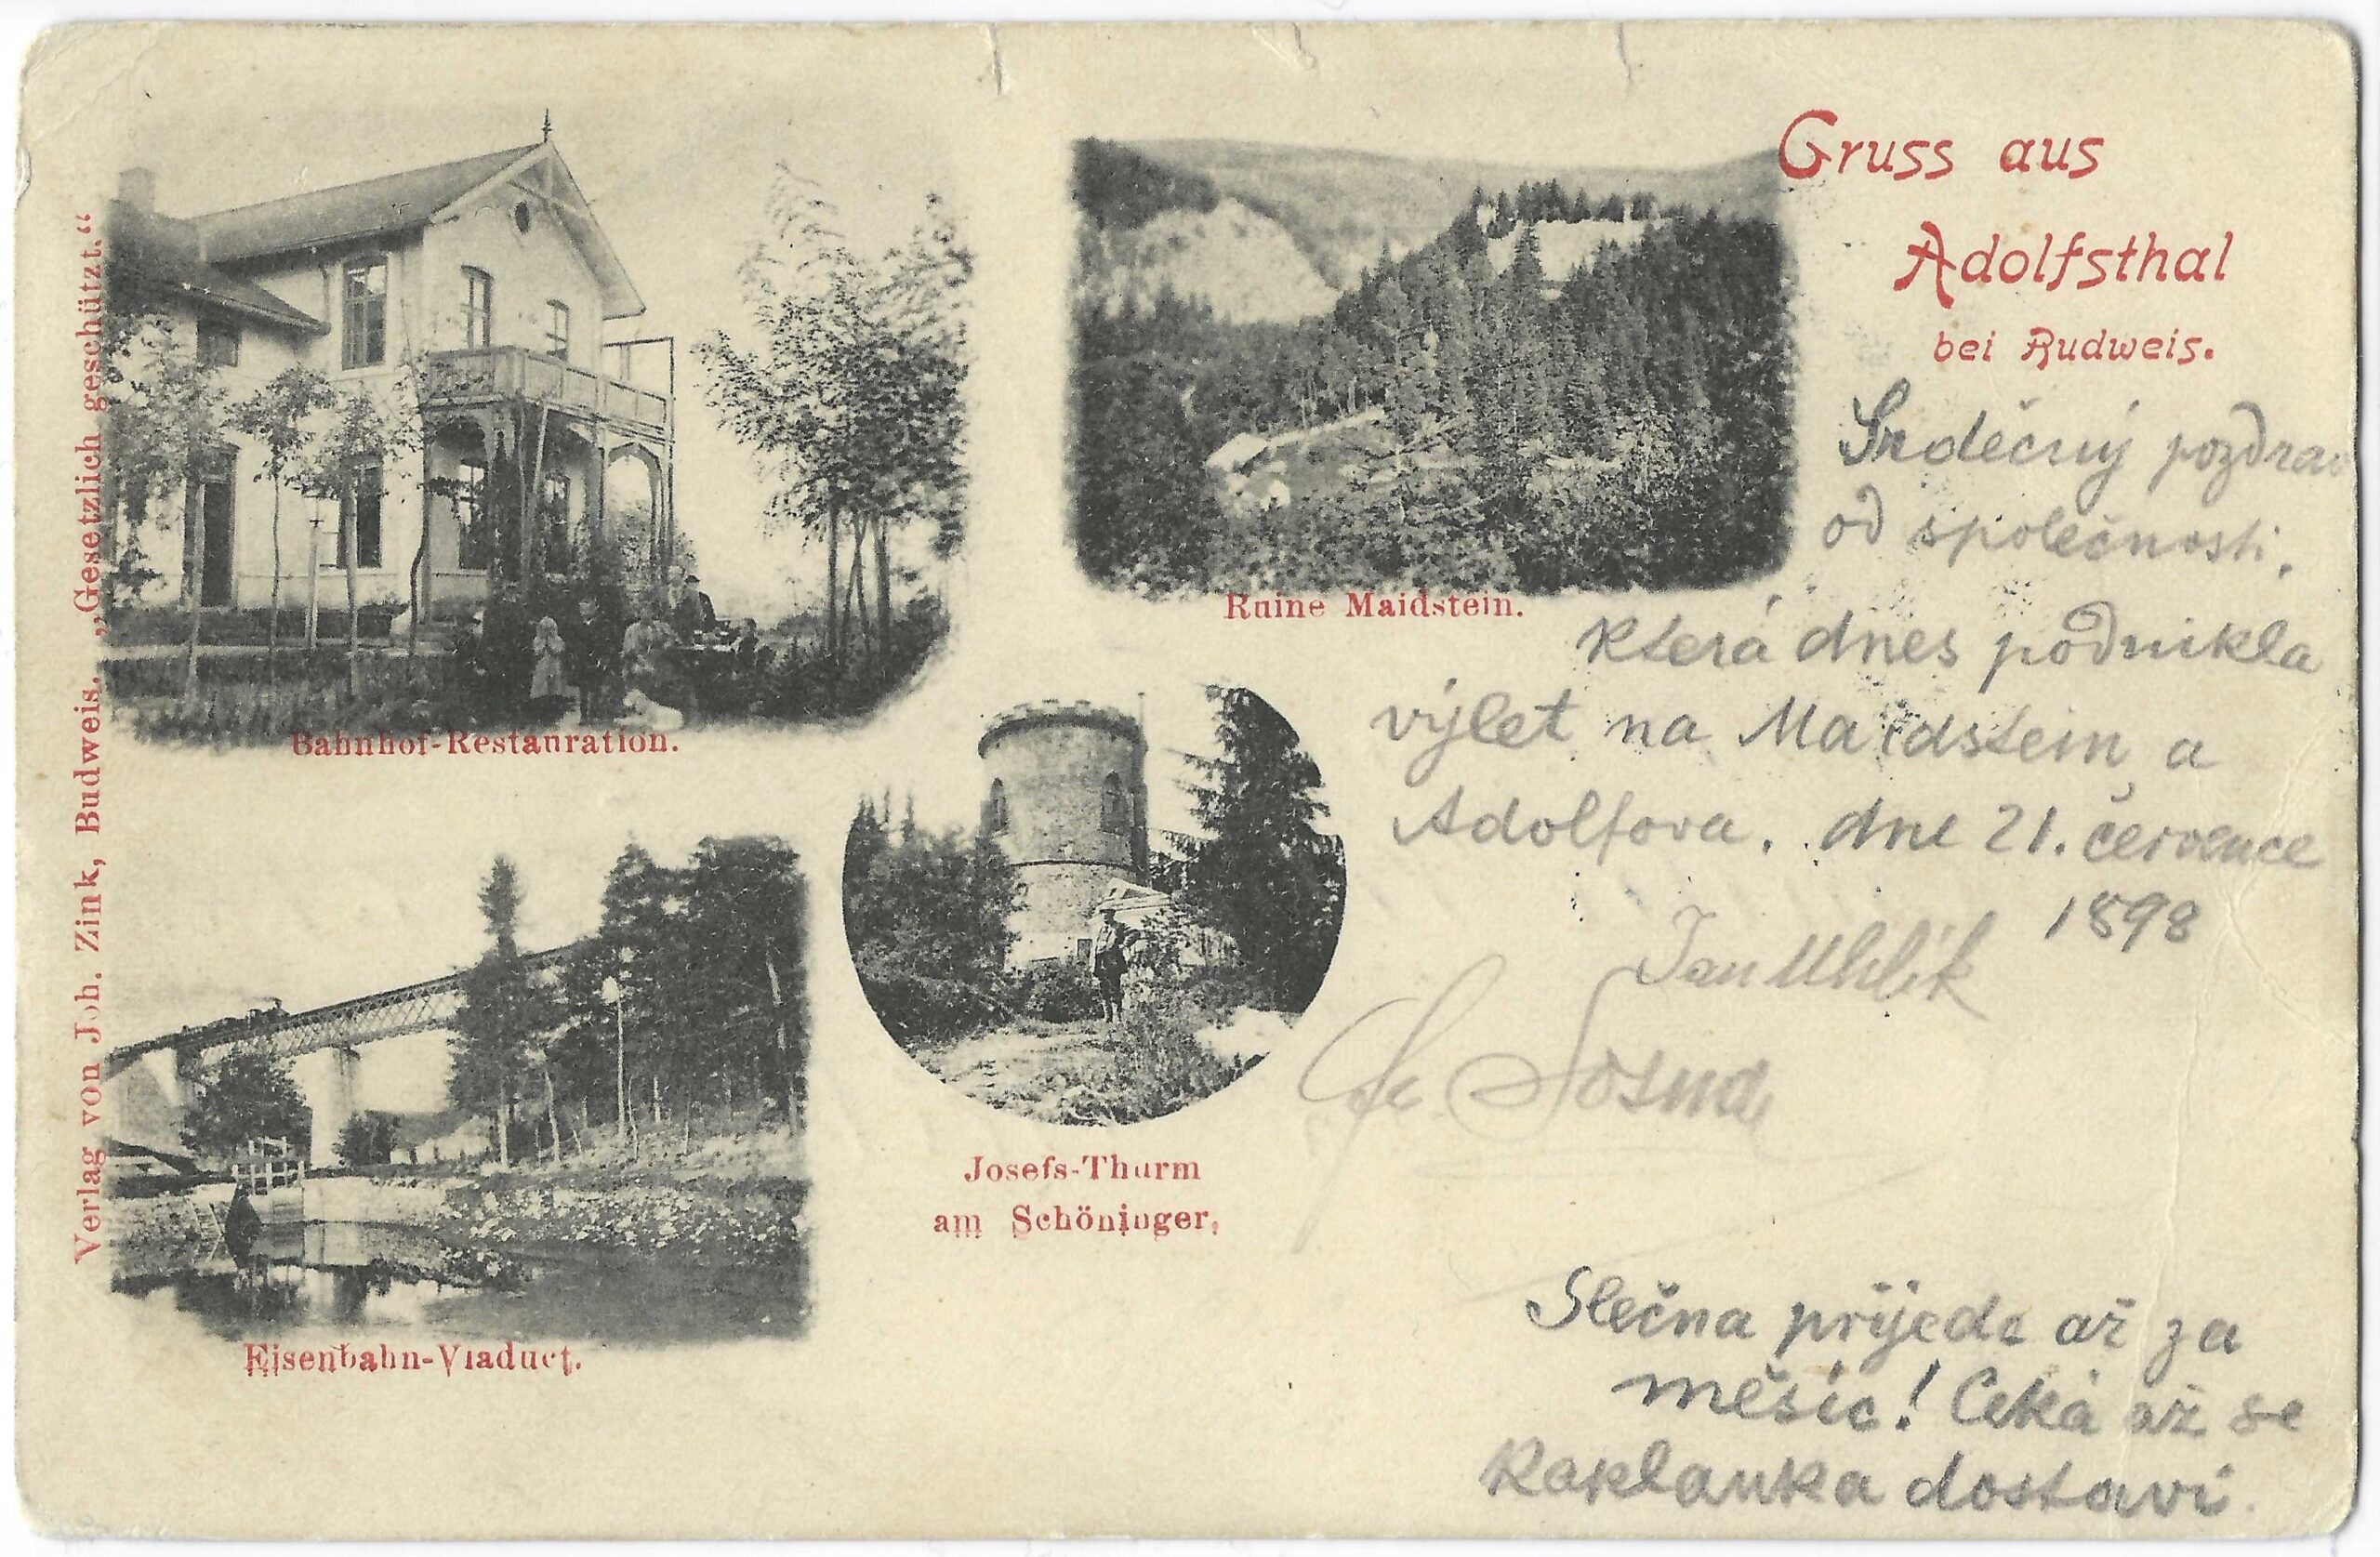 Gruss aus
Adolfsthal
bei Budweis.
Verlag von Joh. Zink, Budweis. „Gesetzlich geschützt.“
Bahnhof-Restauration.
Ruine Maidstein.
Josefs-Thurm
am Schöninger,
Eisenbahn-Viaduct.
Srdečný pozdrav
od společnosti,
která dnes podnikla
výlet na Maidstein a
Adolfova. dne 21. července
1898
Jan Uhlík
Sosna
Slečna přijede až za
měsíc! Čeká až se
Kaplanka dostaví.